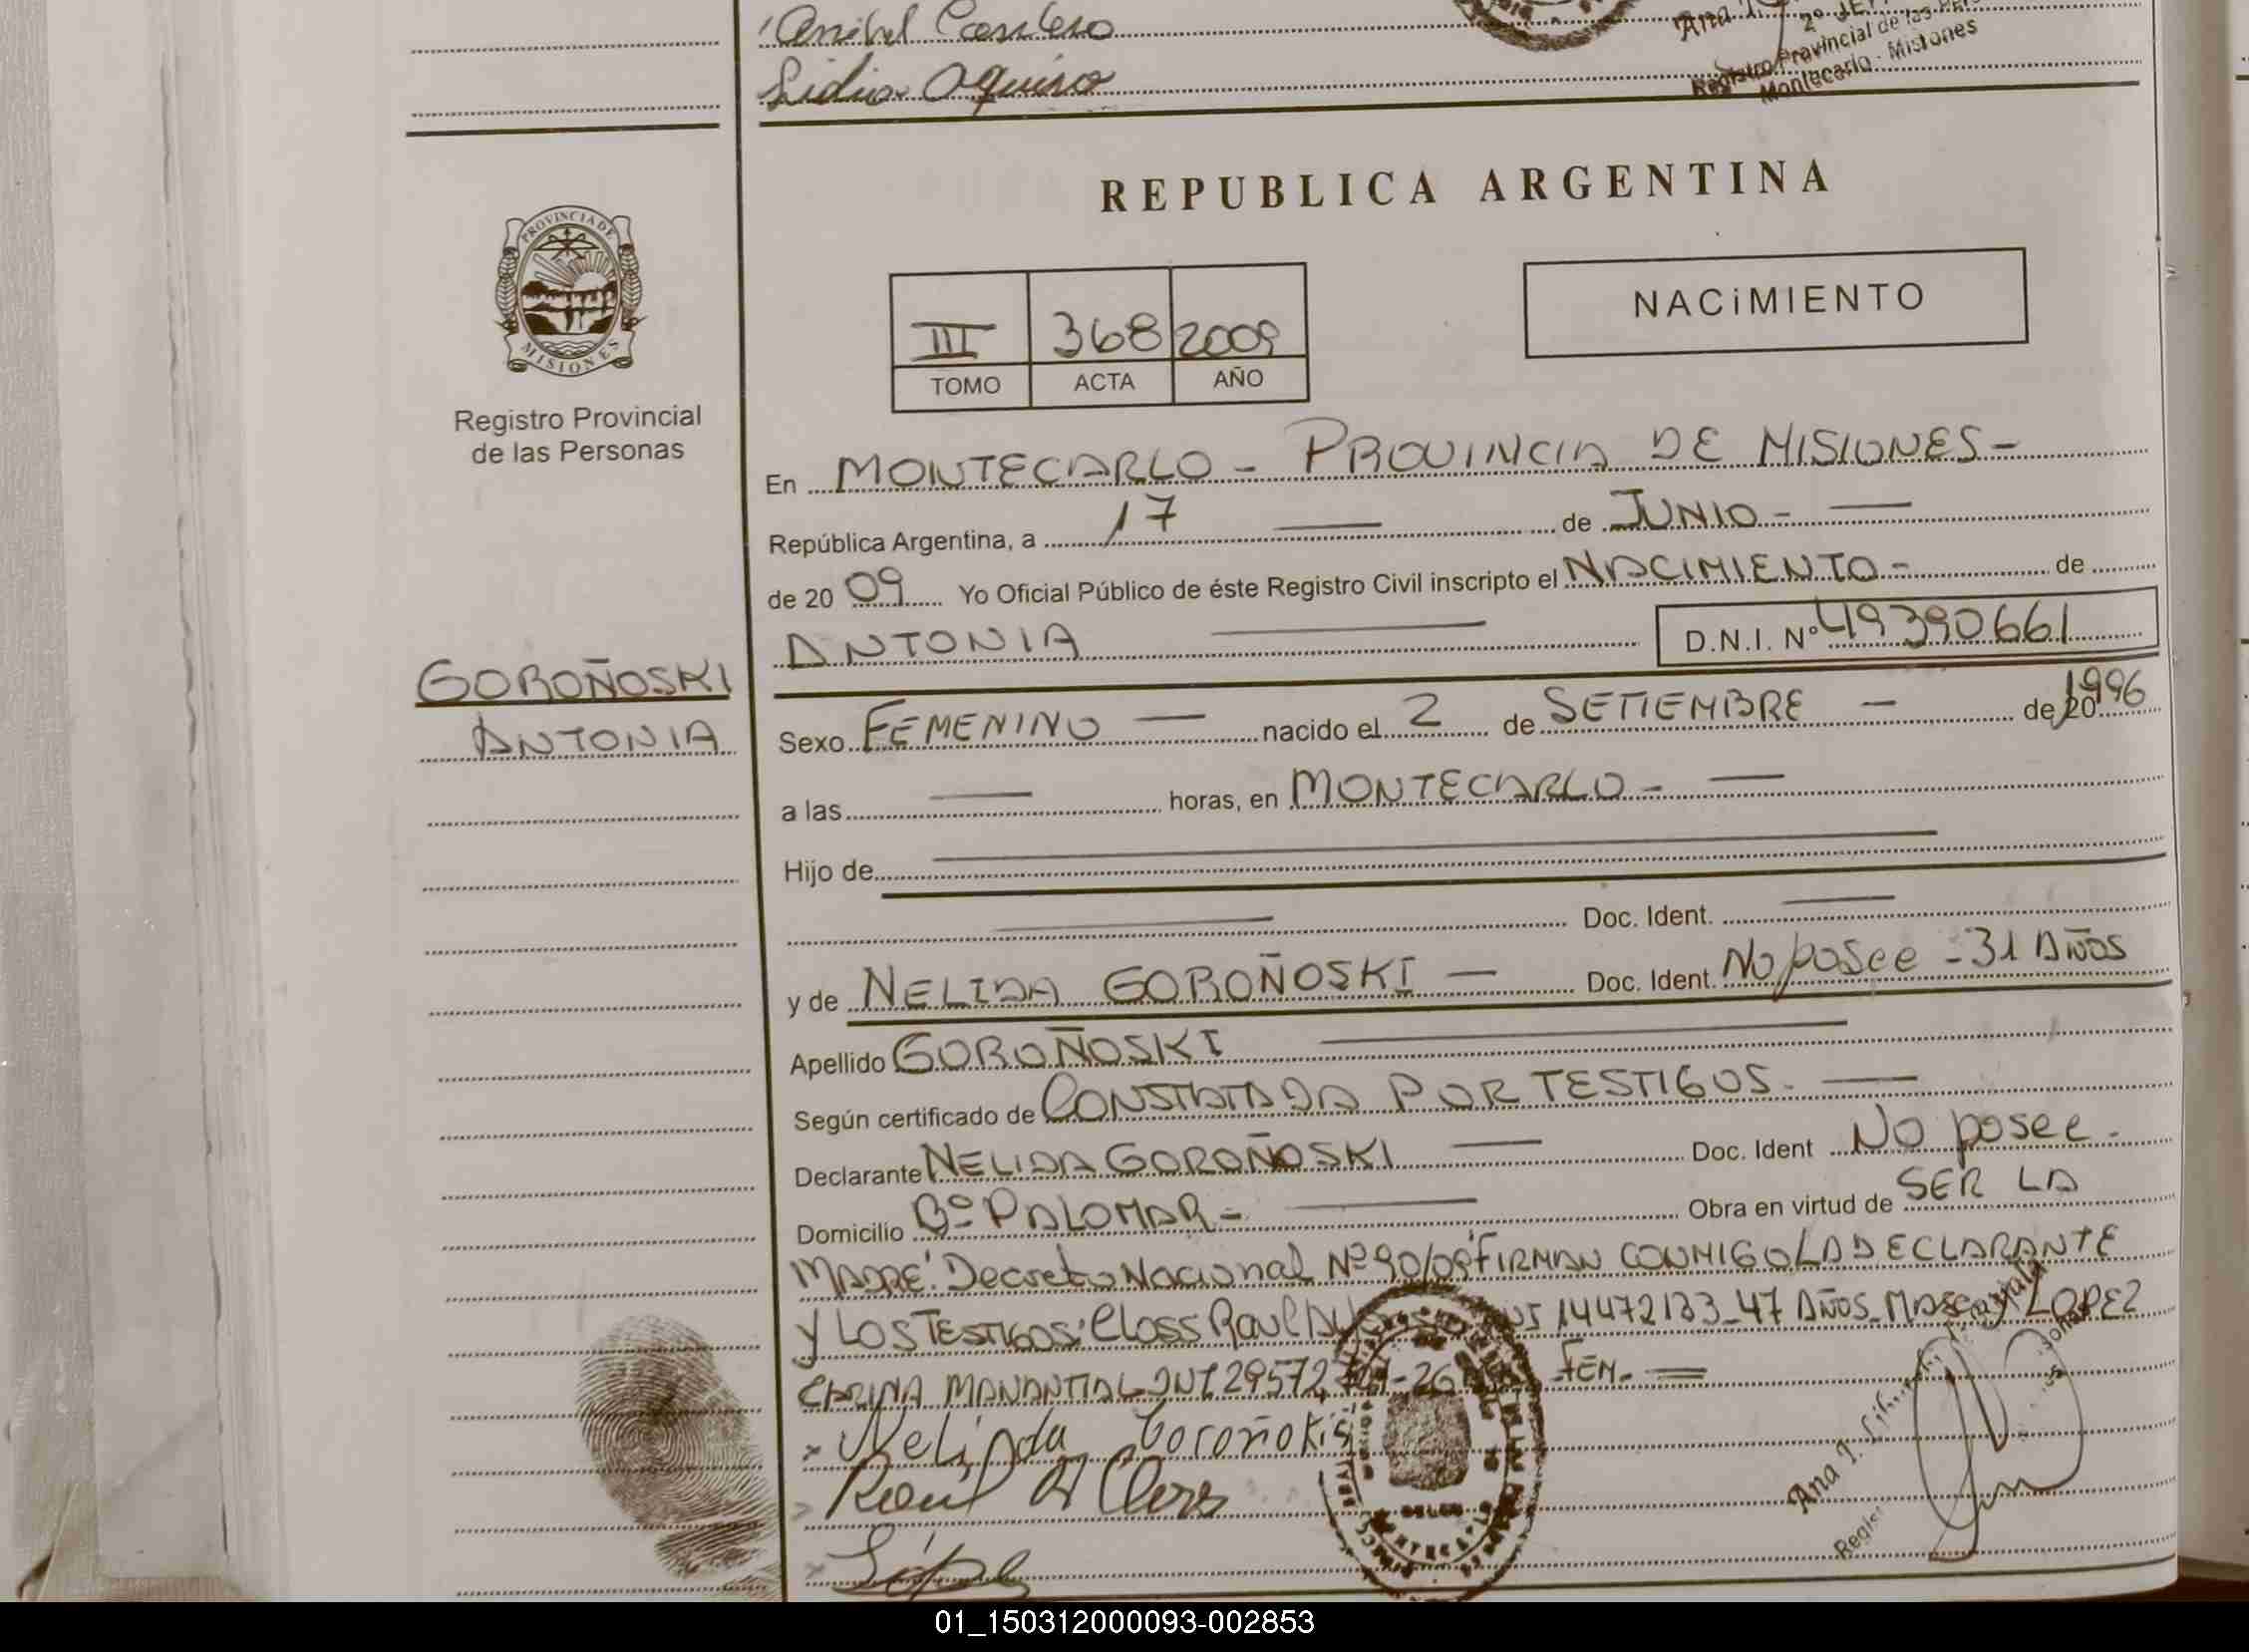 Lidia Aquino
Ana I.
2º JEF
Registro Provincial de las Per
Montecarlo - Misiones
REPUBLICA ARGENTINA
PROVINCIA DE
MISIONES
Registro Provincial
de las Personas
NACiMIENTO
III 368 2009
TOMO ACTA AÑO
En MONTECARLO - PROVINCIA DE MISIONES -
República Argentina, a 17 de JUNIO -
de 20 09 Yo Oficial Público de éste Registro Civil inscripto el NACIMIENTO - de
ANTONIA D.N.I. Nº 49390661
GOROÑOSKI
ANTONIA
Sexo FEMENINO nacido el 2 de SETIEMBRE - de 20 1996
a las horas, en MONTECARLO -
Hijo de
Doc. Ident.
y de NELIDA GOROÑOSKI - Doc. Ident. No posee - 31 AÑOS
Apellido GOROÑOSKI
Según certificado de CONSTATADA POR TESTIGOS.
Declarante NELIDA GOROÑOSKI Doc. Ident No posee -
Domicilio Bº PALOMAR - Obra en virtud de SER LA
MADRE. Decreto Nacional Nº 90/09 FIRMAN CONMIGO LA DECLARANTE
y LOS TESTIGOS: Closs Raul 14472133 - 47 AÑOS - MASC y LOPEZ
CARINA MANANTIAL DNI 29572 - 26 FEM. =
Nelida Goroñokis
Raul A Closs
López
Ana I.
Regist
01_150312000093-002853